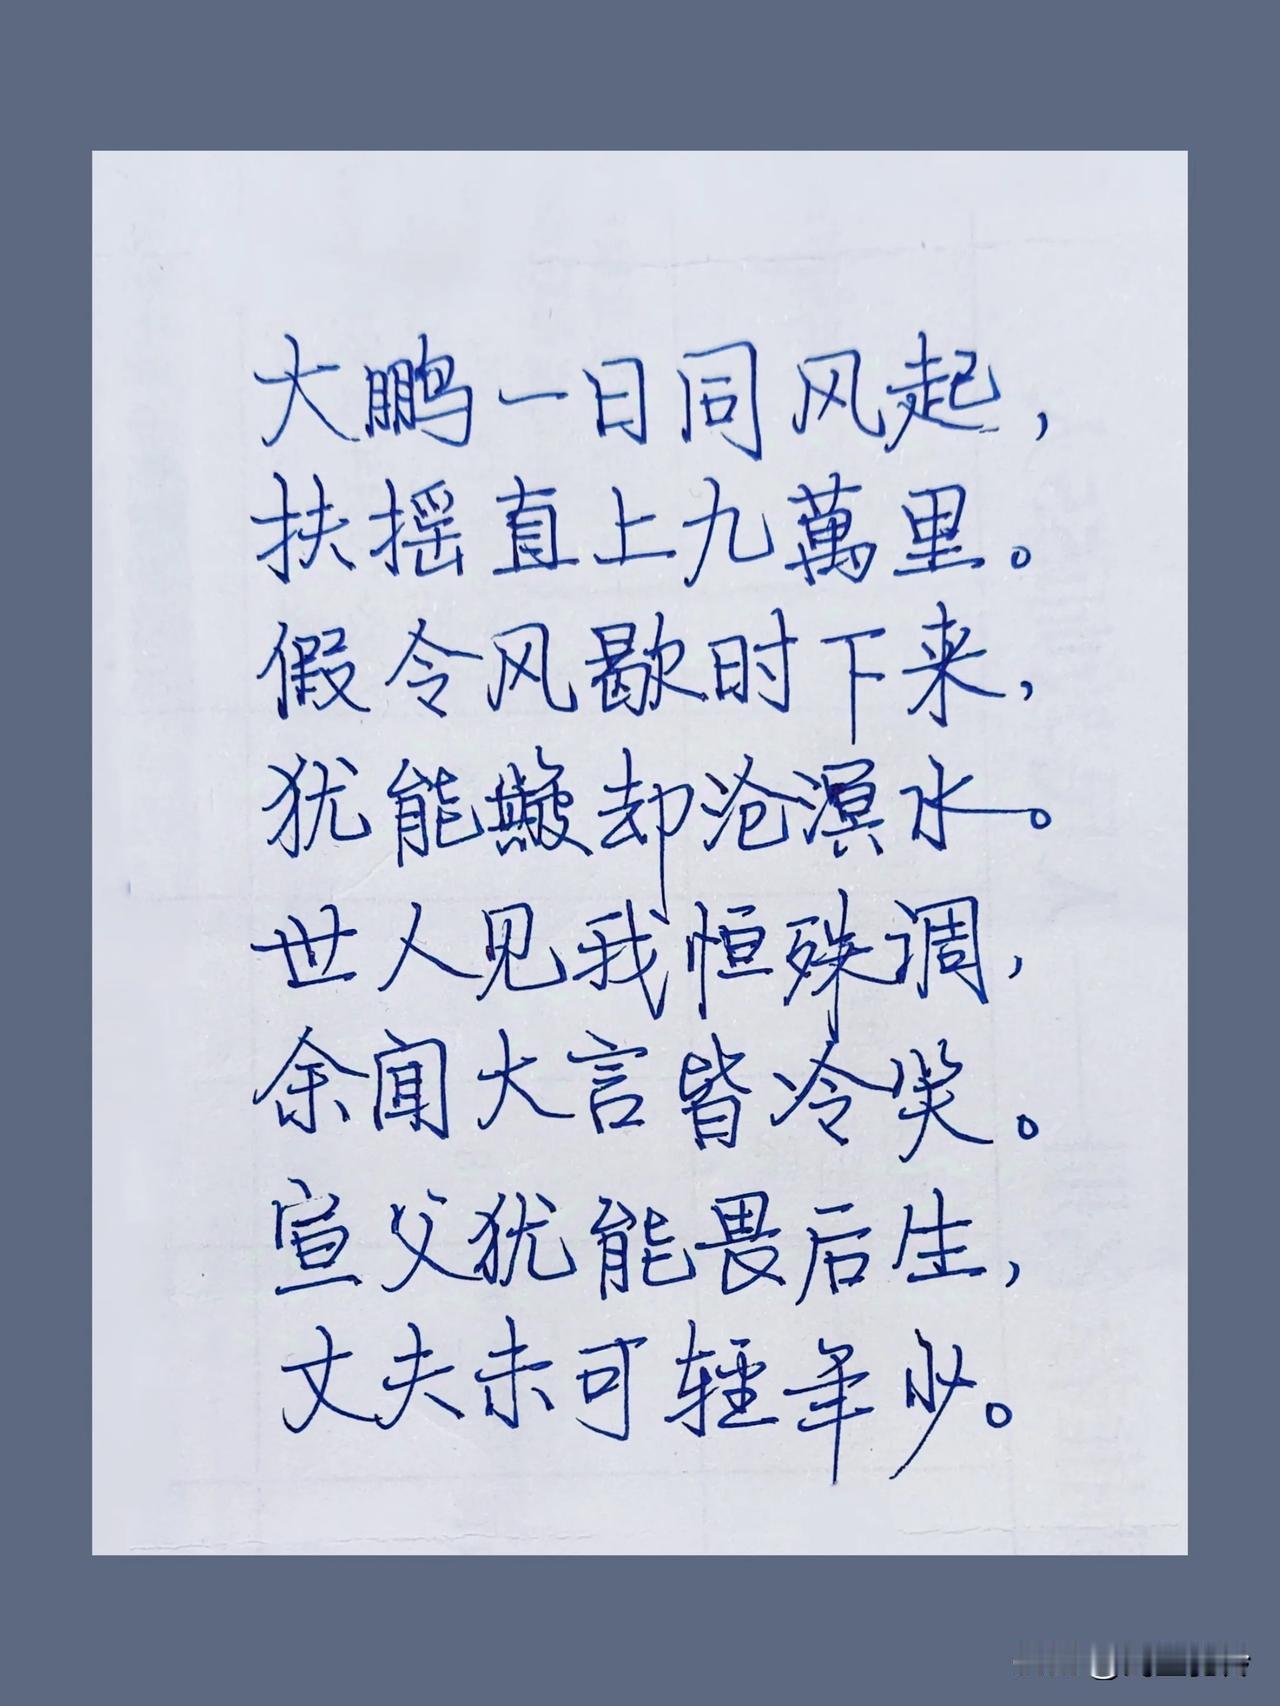 大鹏一日同风起，
扶摇直上九萬里。
假令风歇时下来，
犹能簸却沧溟水。
世人见我恒殊调，
余闻大言皆冷笑。
宣父犹能畏后生，
丈夫未可轻年少。